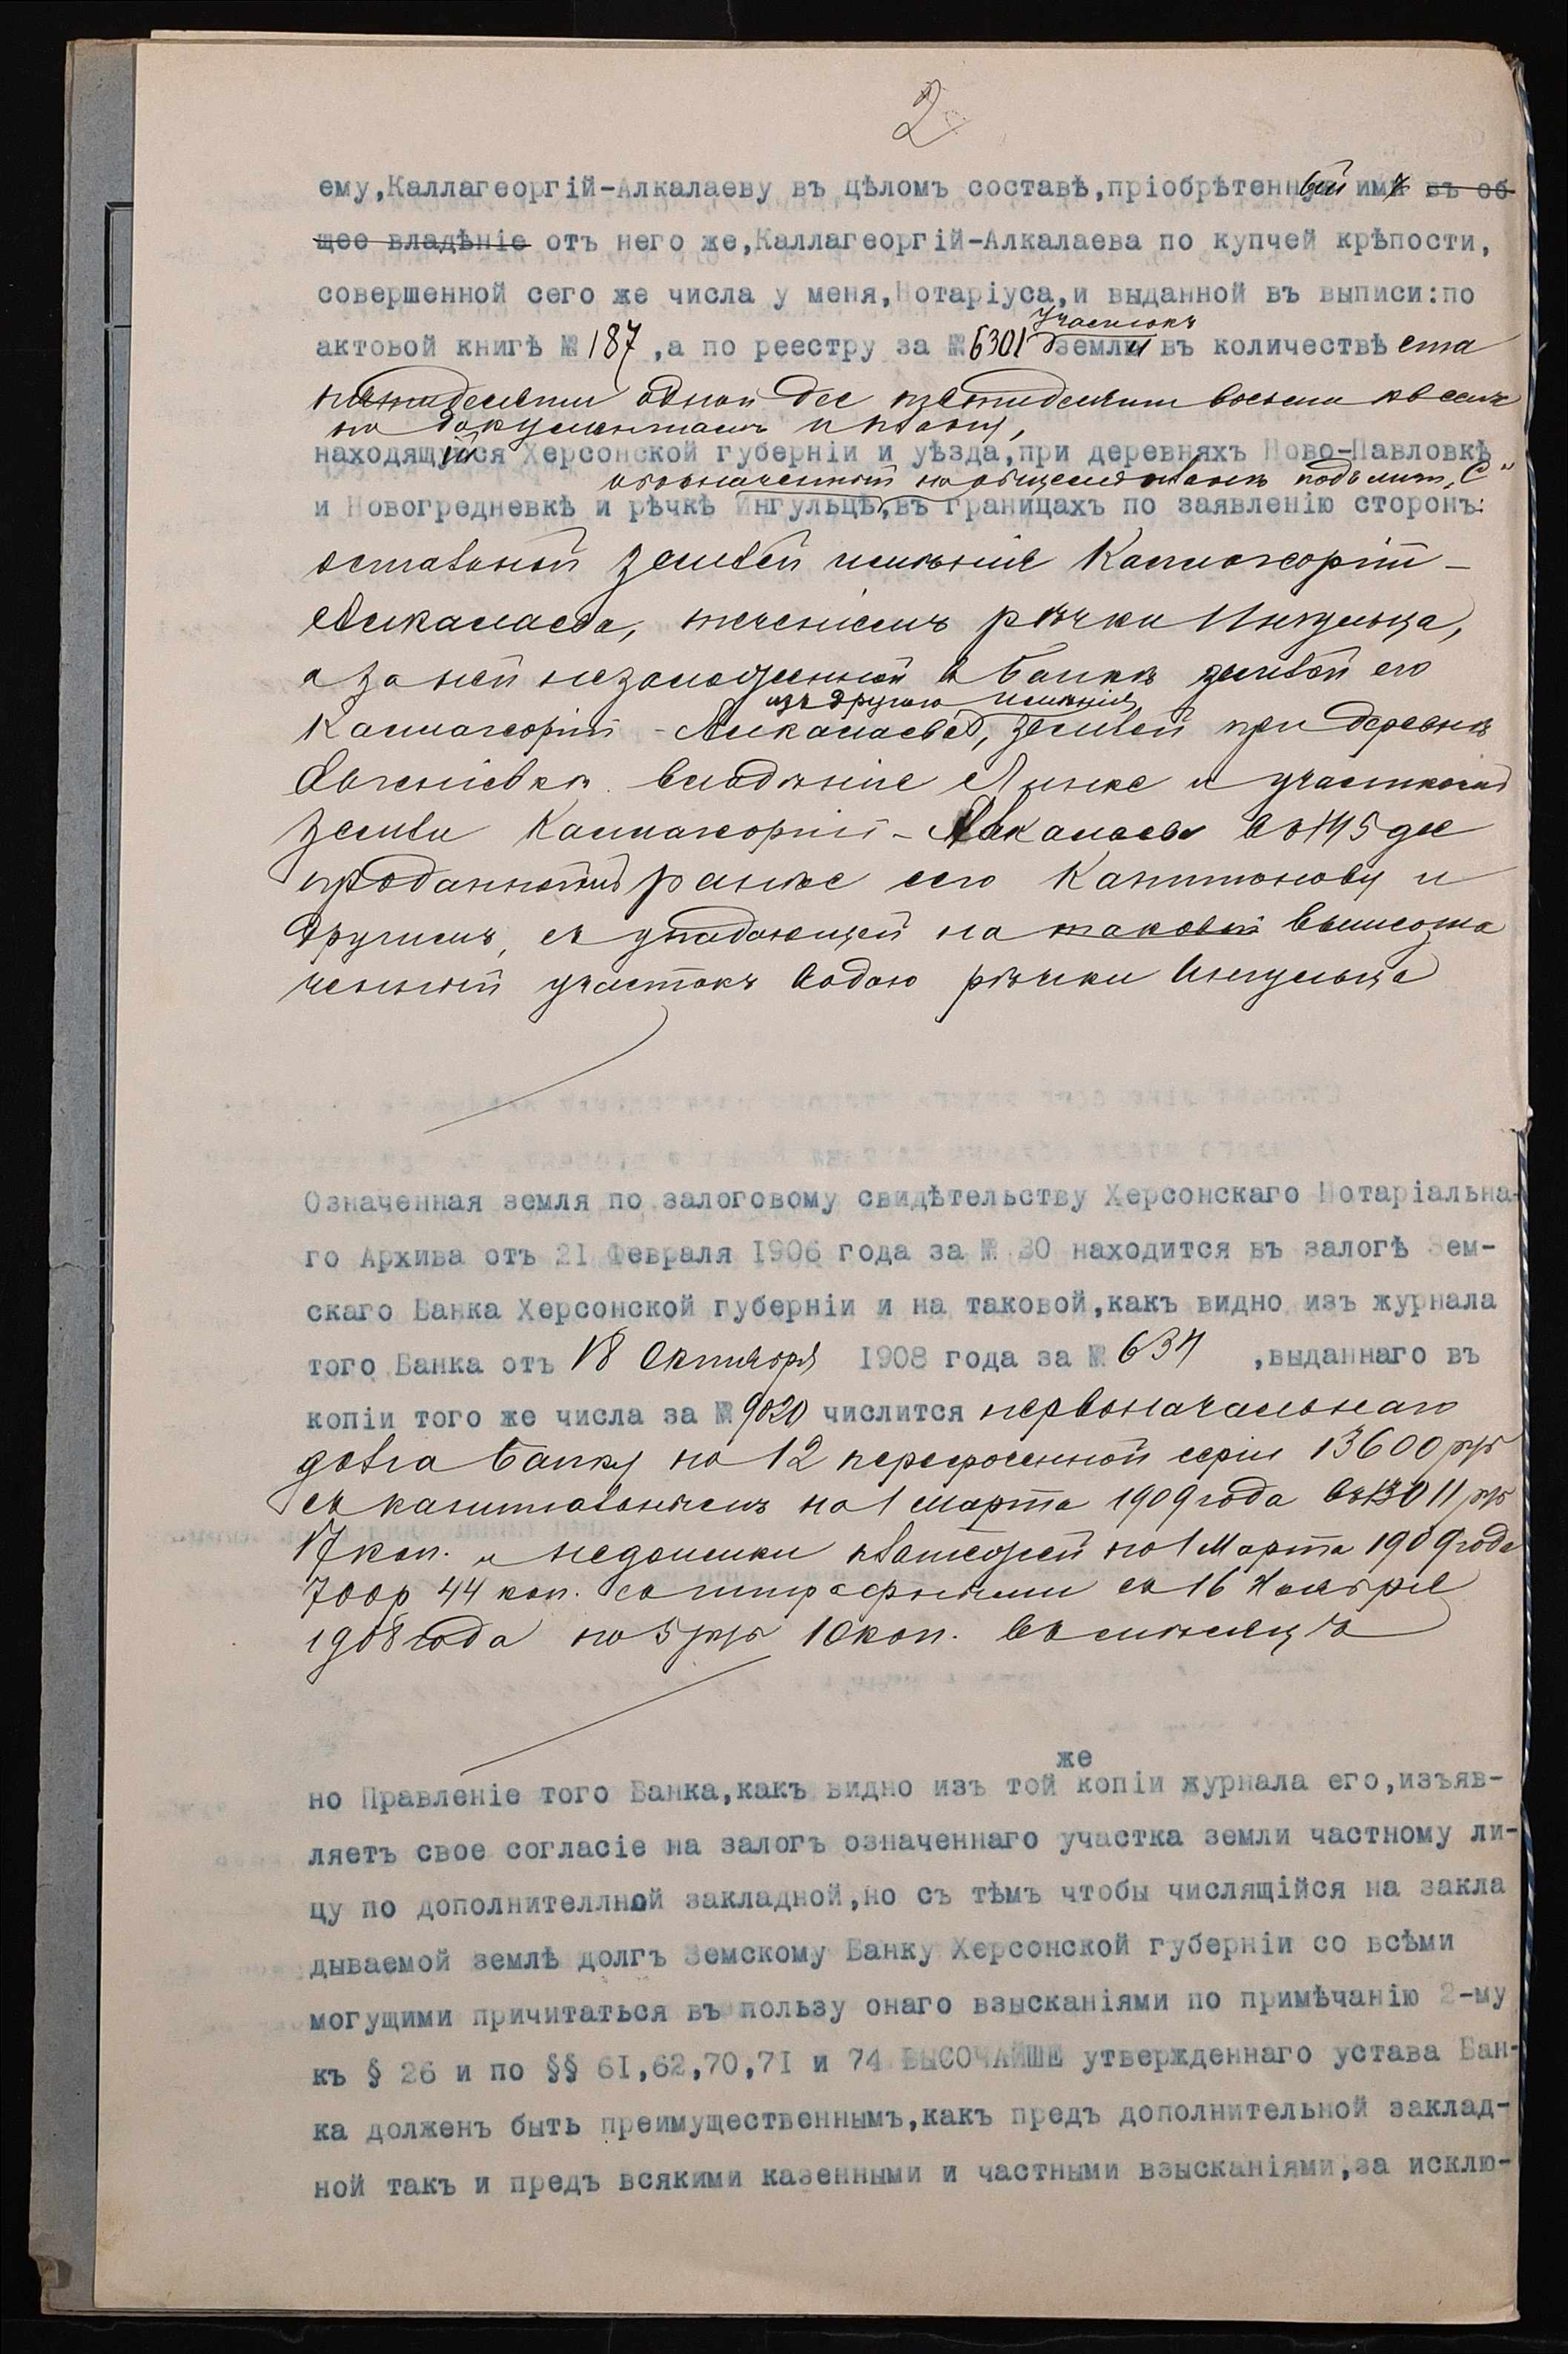 2
ему,Каллагеоргій-Алкалаеву въ цѣломъ составѣ,пріобрѣтенный имъ въ об-
щее владѣніе отъ него же,Каллагеоргій-Алкалаева по купчей крѣпости,
совершенной сего же числа у меня,Нотаріуса,и выданной въ выписи:по
участокъ
актовой книгѣ № 187 ,а по реестру за № 6301 земли въ количествѣ ста
пятидесяти одной дес пятидесяти восьми кв саж
по документамъ и плану,
находящійся Херсонской губерніи и уѣзда,при деревняхъ Ново-Павловкѣ
обозначенный на общемъ планѣ подъ лит. „С"
и Новогредневкѣ и рѣчкѣ Ингульцѣ,въ границахъ по заявленію сторонъ:
остальной землей имѣнія Каллагеоргій-
Алкалаева, теченіемъ рѣчки Ингульца,
а за ней незаложенной въ банкѣ землей его
изъ другого имѣнія
Каллагеоргій-Алкалаева, землей при деревнѣ
владѣнія и участкомъ
земли Каллагеоргій-Алкалаева въ 145 дес
проданной ранѣе его Капитонову и
другимъ, съ упадающей на таковой вышеозна
ченный участокъ водою рѣчки Ингульца
Означенная земля по залоговому свидѣтельству Херсонскаго Нотаріальна-
го Архива отъ 21 Февраля 1906 года за № 30 находится въ залогѣ Зем-
скаго Банка Херсонской губерніи и на таковой,какъ видно изъ журнала
того Банка отъ 18 Октября 1908 года за № 634 ,выданнаго въ
копіи того же числа за № 9020 числится первоначальнаго
долга банку по 12 пересроченной серіи 13600 руб
съ капитальнымъ на 1 марта 1909 года въ 13011 руб
17 коп. и недоимки платежей по 1 Марта 1909 года
700 р 44 коп. со штрафными съ 16 Ноября
1908 года по 5 руб 10 коп. въ мѣсяцъ
же
но Правленіе того Банка,какъ видно изъ той копіи журнала его,изъяв-
ляетъ свое согласіе на залогъ означеннаго участка земли частному ли-
цу по дополнителлной закладной,но съ тѣмъ чтобы числящійся на закла
дываемой землѣ долгъ Земскому Банку Херсонской губерніи со всѣми
могущими причитаться въ пользу онаго взысканіями по примѣчанію 2-му
къ § 26 и по §§ 61,62,70,71 и 74 ВЫСОЧАЙШЕ утвержденнаго устава Бан-
ка долженъ быть преимущественнымъ,какъ предъ дополнительной заклад-
ной такъ и предъ всякими казенными и частными взысканіями,за исклю-